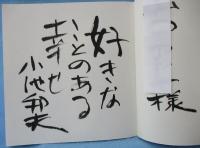 様
好きな
ことのある
幸せ
小池邦夫